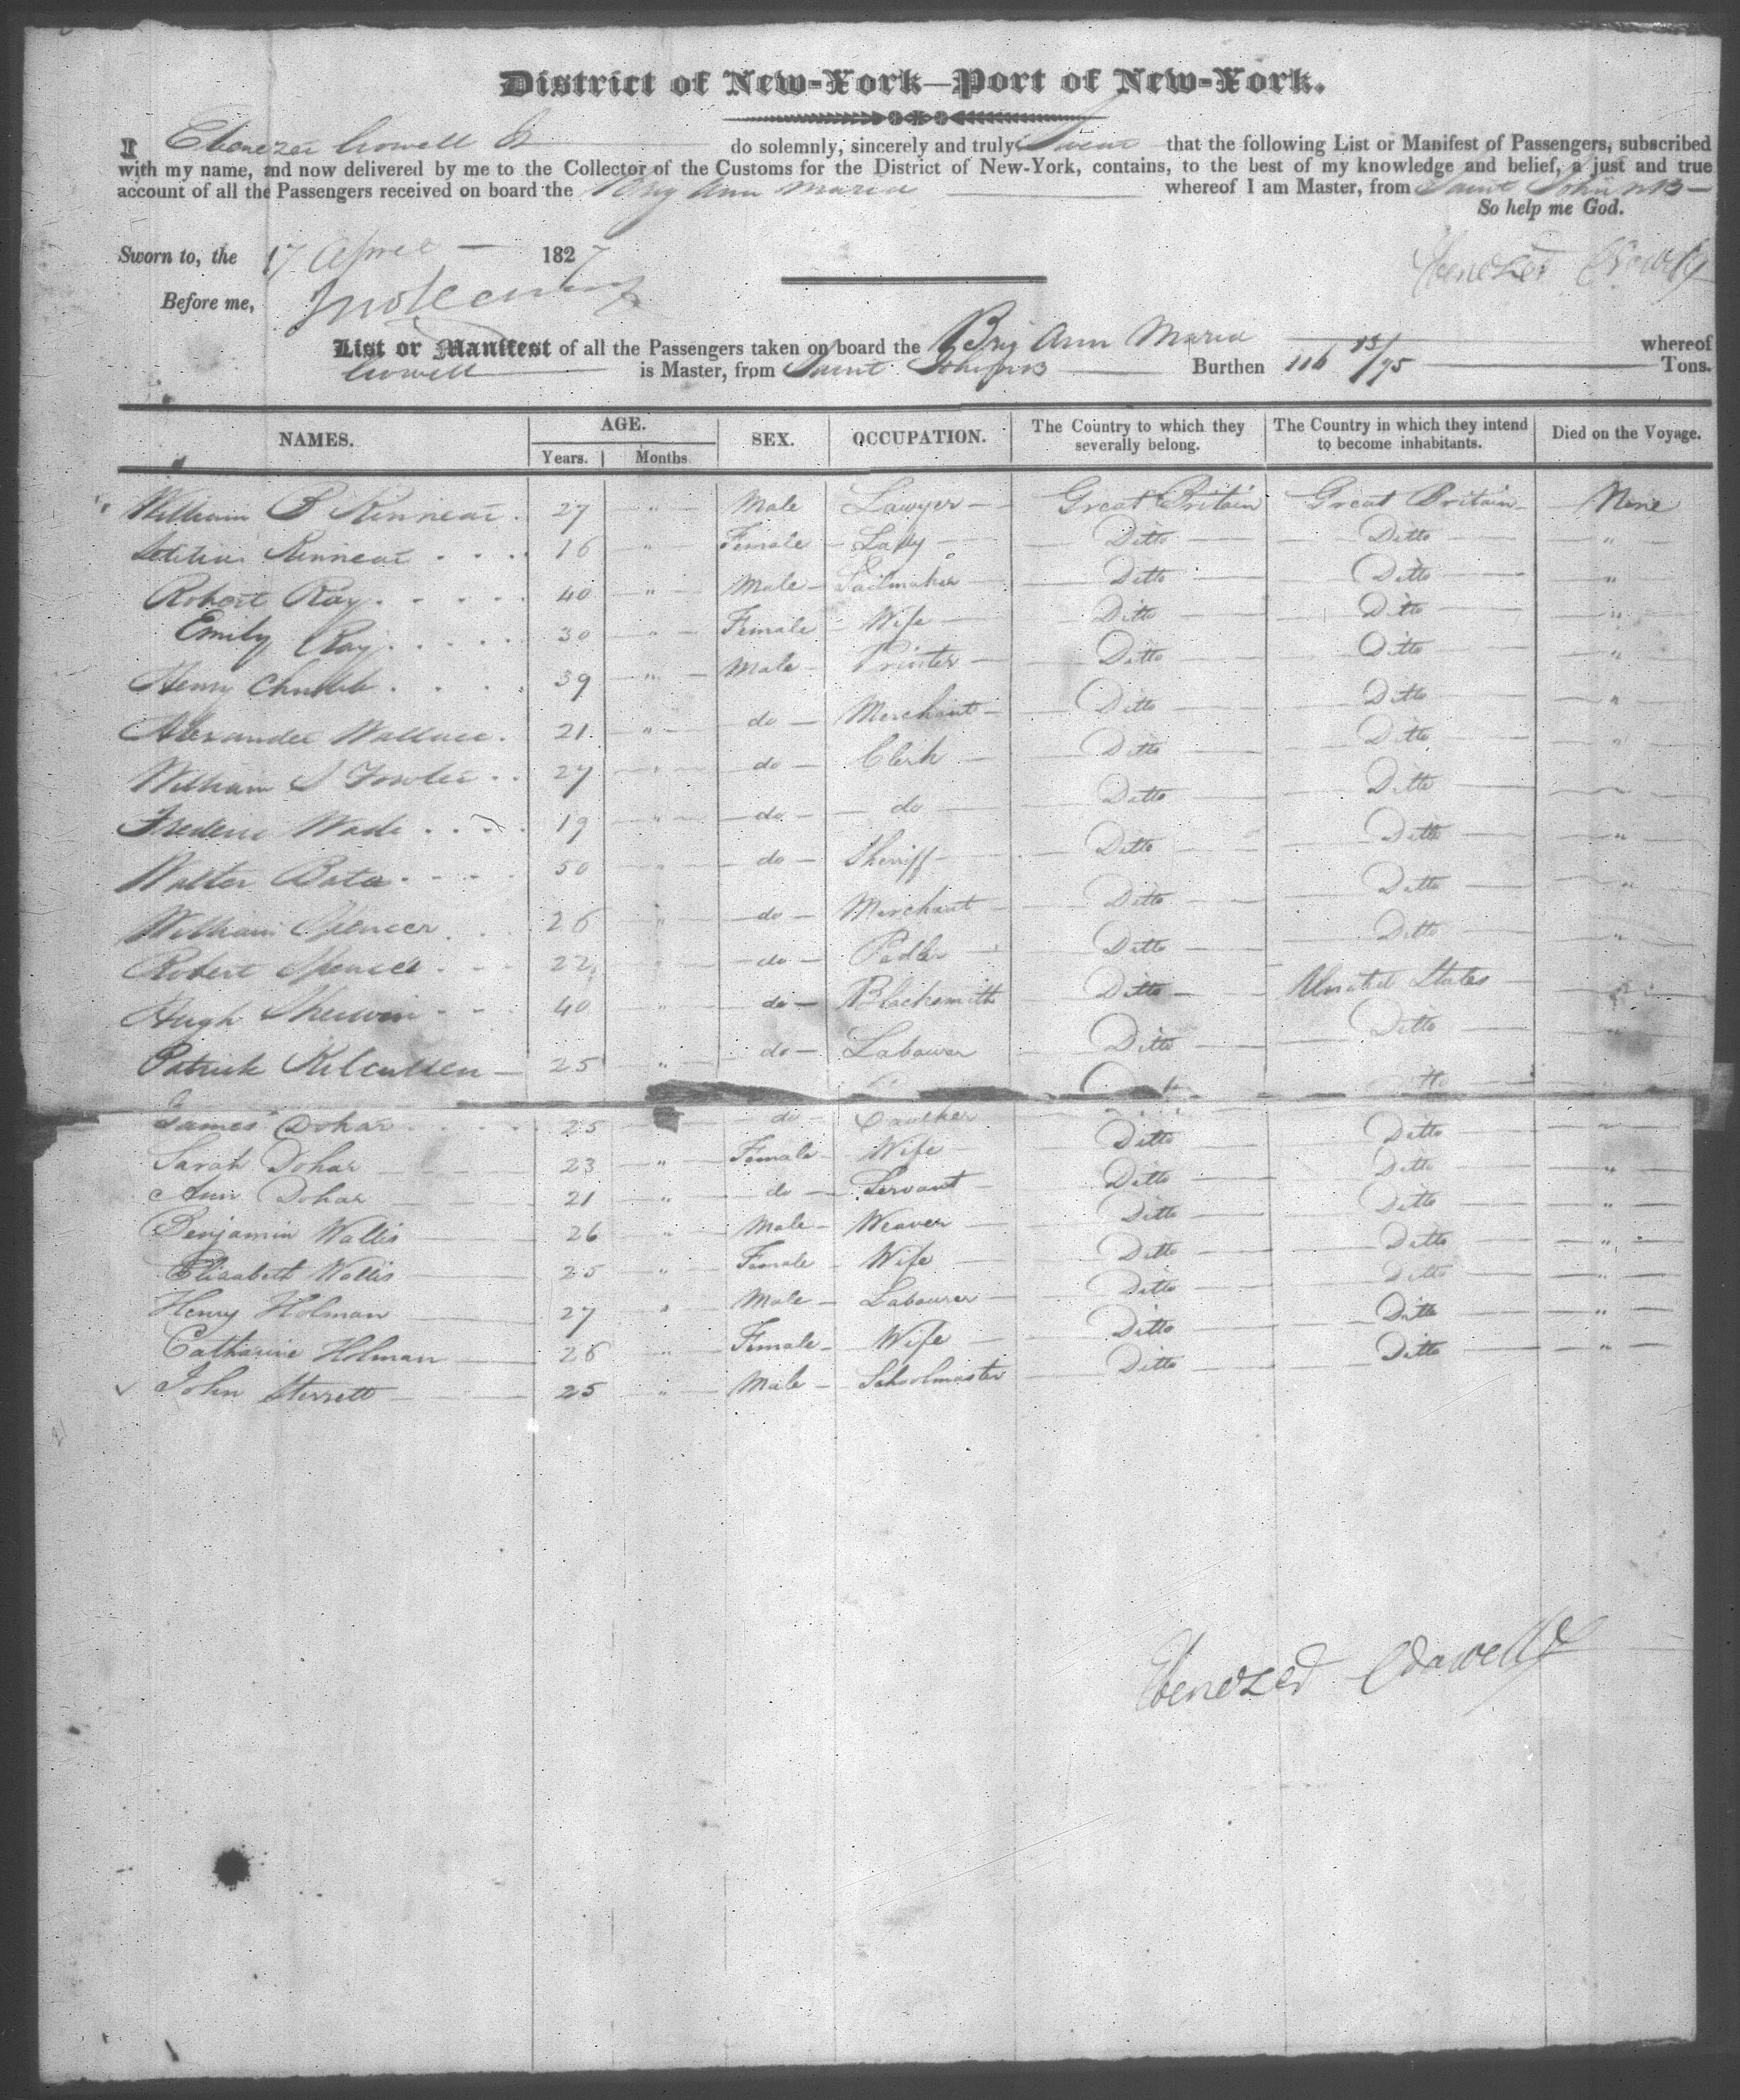 District of New-York—Port of New-York.
I Ebenezer Crowell Jr do solemnly, sincerely and truly Swear that the following List or Manifest of Passengers, subscribed
with my name, and now delivered by me to the Collector of the Customs for the District of New-York, contains, to the best of my knowledge and belief, a just and true
account of all the Passengers received on board the Brig Ann Maria whereof I am Master, from Saint John NB
So help me God.
Sworn to, the 17 April 1827
Ebenezer Crowell Jr
Before me,
List or Manifest of all the Passengers taken on board the Brig Ann Maria whereof
Crowell is Master, from Saint John NB Burthen 116 13/95 Tons.
NAMES. AGE. Years. Months SEX. OCCUPATION. The Country to which they severally belong. The Country in which they intend to become inhabitants. Died on the Voyage.
William B Kinnear 27 " Male Lawyer Great Britain Great Britain None
Letitia Kinnear 16 " Female Lady Ditto Ditto "
Robert Ray 40 " Male Sailmaker Ditto Ditto "
Emily Ray 30 " Female Wife Ditto Ditto "
Henry Chubb 39 " Male Printer Ditto Ditto "
Alexander Wallace 21 " do Merchant Ditto Ditto "
William S Fowler 27 " do Clerk Ditto Ditto "
Frederic Wade 19 " do do Ditto Ditto
Walter Bates 50 " do Sheriff Ditto Ditto "
William Spencer 26 " do Merchant Ditto Ditto "
Robert Spencer 22 " do Pedler Ditto Ditto "
Hugh Sherwin 40 " do Blacksmith Ditto United States "
Patrick Kilcullen 25 " do Labourer Ditto Ditto "
James Dohar 25 do Caulker Ditto Ditto "
Sarah Dohar 23 " Female Wife Ditto Ditto "
Ann Dohar 21 " do Servant Ditto Ditto "
Benjamin Wallis 26 " Male Weaver Ditto Ditto "
Elizabeth Wallis 25 " Female Wife Ditto Ditto "
Henry Holman 27 " Male Labourer Ditto Ditto "
Catharine Holman 26 " Female Wife Ditto Ditto "
John Sterrett 25 " Male Schoolmaster Ditto Ditto "
Ebenezer Crowell Jr